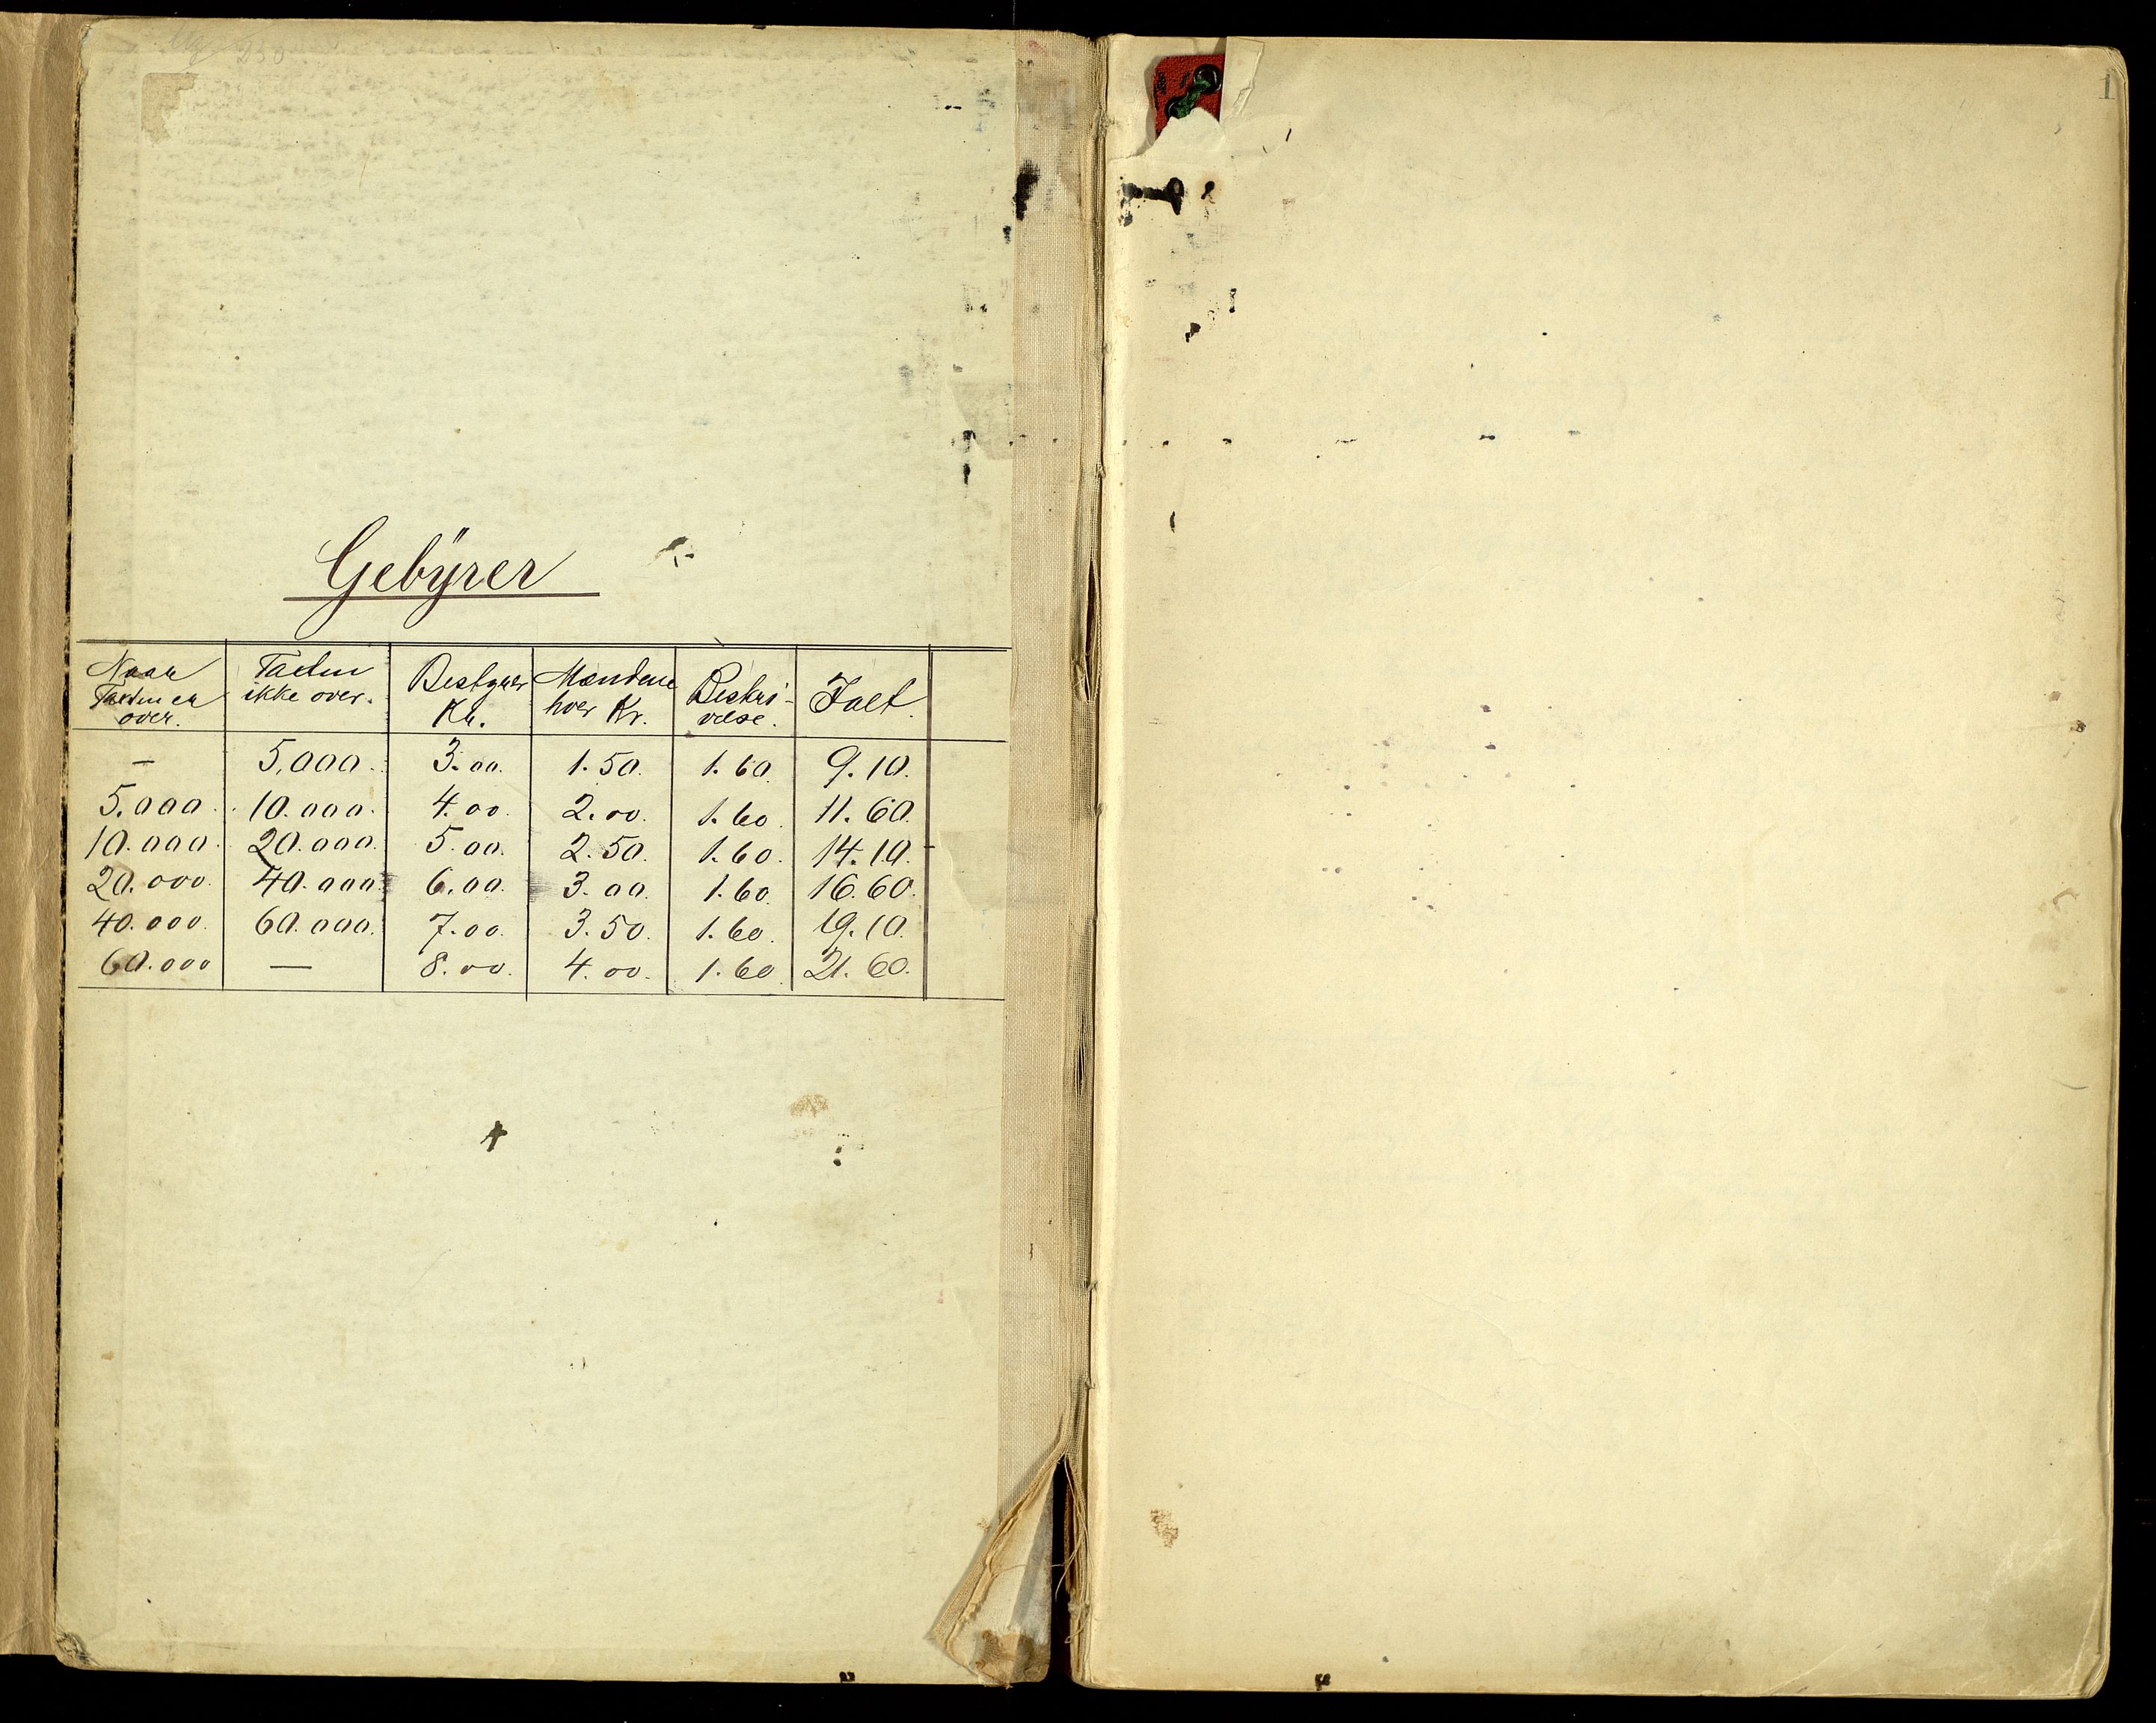 230
1
Gebÿrer
Naar Taxten er over. | Taxten ikke over. | Bestyrer Kr. | Mændene hver Kr. | Beskrivelse. | Ialt.
— | 5,000. | 3.00. | 1.50. | 1.60. | 9.10.
5.000. | 10.000. | 4.00. | 2.00. | 1.60. | 11.60.
10.000. | 20.000. | 5.00. | 2.50. | 1.60. | 14.10.
20.000. | 40.000. | 6.00. | 3.00. | 1.60. | 16.60.
40.000. | 60.000. | 7.00. | 3.50. | 1.60. | 19.10.
60.000 | — | 8.00. | 4.00. | 1.60. | 21.60.